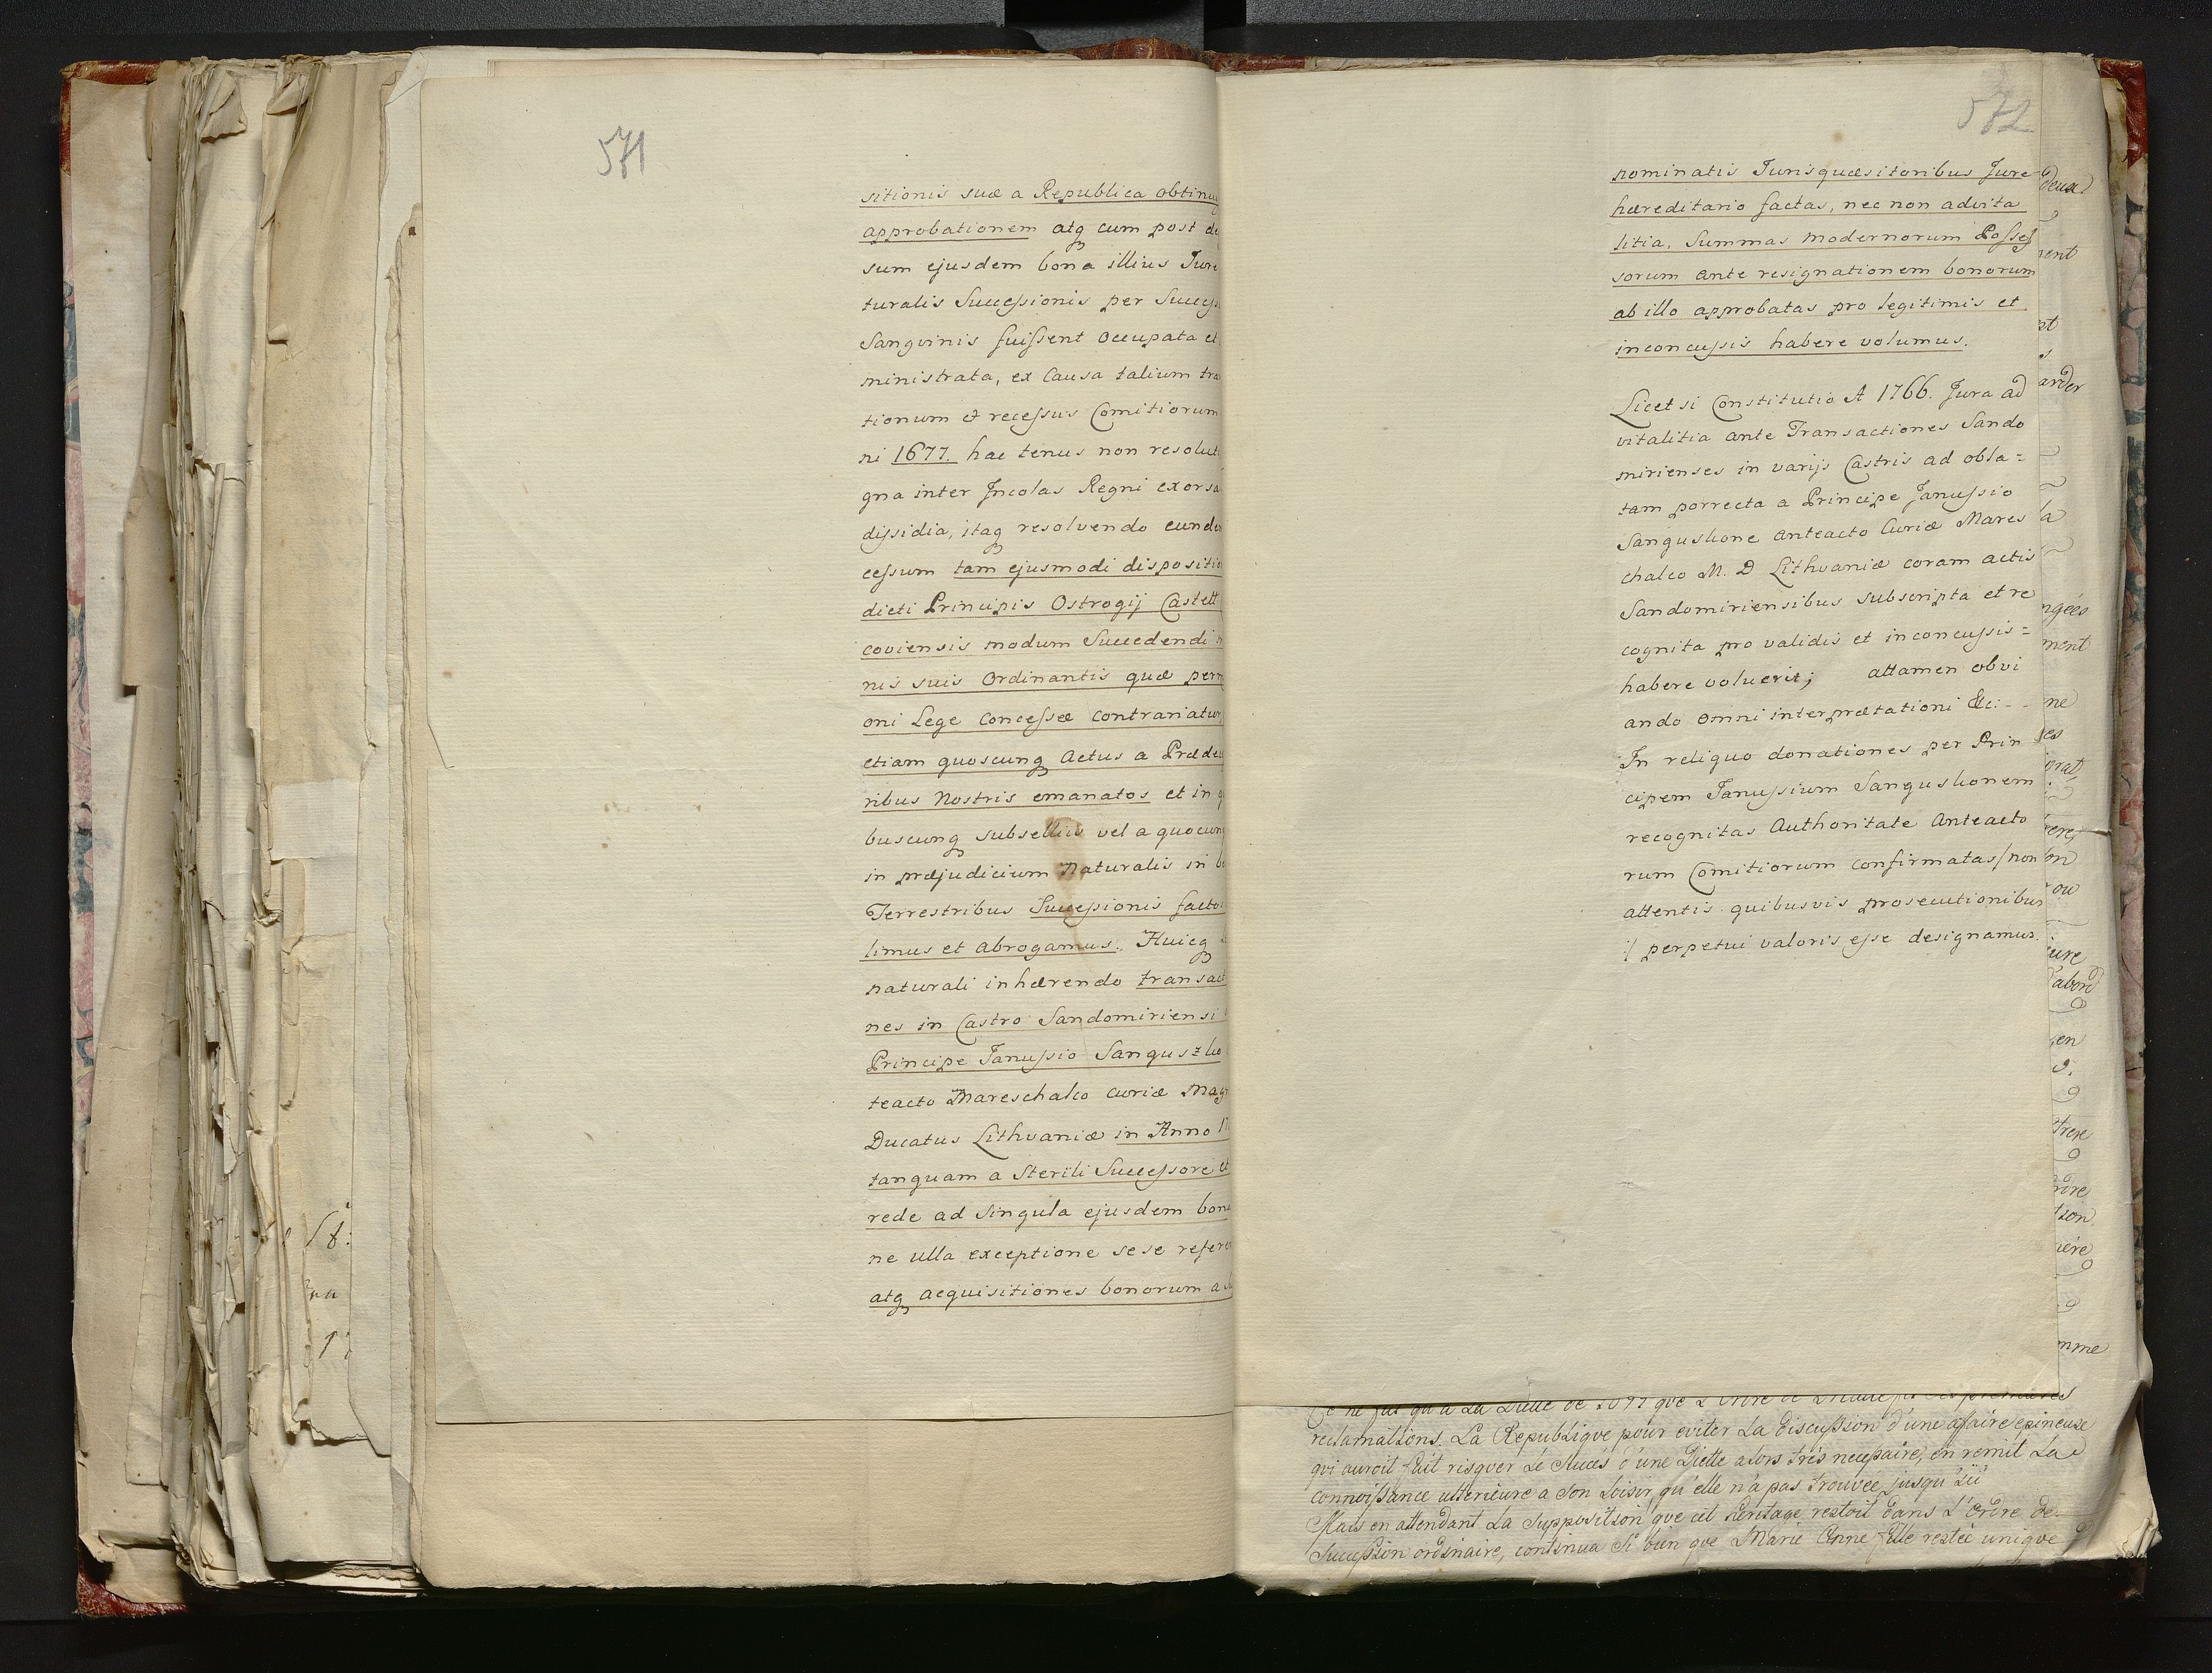 571
sitionis suæ a Republica obtinu
approbationem atq cum post de
sum ejusdem bona illius Jure
turalis Successionis per Success
Sangvinis fuissent occupata et
ministrata, ex Causa talium tra
tionum et recessus Comitiorum
ni 1677. hac tenus non resolut
gna inter Jncolas Regni exorsa
dissidia, itaq resolvendo eunde
cessum tam ejusmodi dispositio
dicti Principis Ostrogij Castell
coviensis modum Succedendi
nis suis Ordinantis quæ perm
oni Lege Concessæ contrariatur
etiam quoscunq Actus a Præde
ribus Nostris emanatos et in q
buscunq subsellijs vel a quocun
in præjudicium Naturalis in b
Terrestribus Successionis facto
limus et Abrogamus. Huicq
naturali inhærendo transact
nes in Castro Sandomiriensi
Principe Janussio Sanguszko
teacto Mareschalco Curiæ Mag
Ducatus Lithvaniæ in Anno 1
tanquam a Sterili Successore et
rede ad Singula ejusdem bona
ne ulla exceptione sese refere
atq acquisitiones bonorum a
572
nominatis Jurisquæsitoribus Jure
hæreditario factas, nec non advita
litia, Summas modernorum Posses
sorum ante resignationem bonorum
ab illo approbatas pro legitimis et
inconcussis habere volumus.
Licet si Constitutio A 1766. Jura ad
vitalitia ante Transactiones Sando
mirienses in varijs Castris ad obla=
tam porrecta a Principe Janussio
Sangushone Anteacto Curiæ Mares
chalco M. D Lithvaniæ coram actis
Sandomiriensibus subscripta et re
cognita pro validis et inconcussis=
habere voluerit; attamen obvi
ando omni interprætationi &c: - -
In reliquo donationes per Prin
cipem Janussium Sangushonem
recognitas Authoritate Anteacto
rum Comitiorum confirmatas / non
attentis quibusvis prosecutionibus
:/ perpetui valoris esse designamus.
deux
ent
ander
ment
ne
ou
jure
d'abord
en
mme
reclamations. La Republique pour eviter La discussion d'une afaire epineuse
qui auroit fait risquer Le Succés d'une Diette alors trés necessaire, en remit La
connoissance ulterieure a son Loisir, qu'elle n'a pas trouvée jusqu'ici
Mais en attendant La Supposition que cet heritage restoit dans L'Ordre de
Succession ordinaire, continua Si bien que Marie Anne fille restée unique